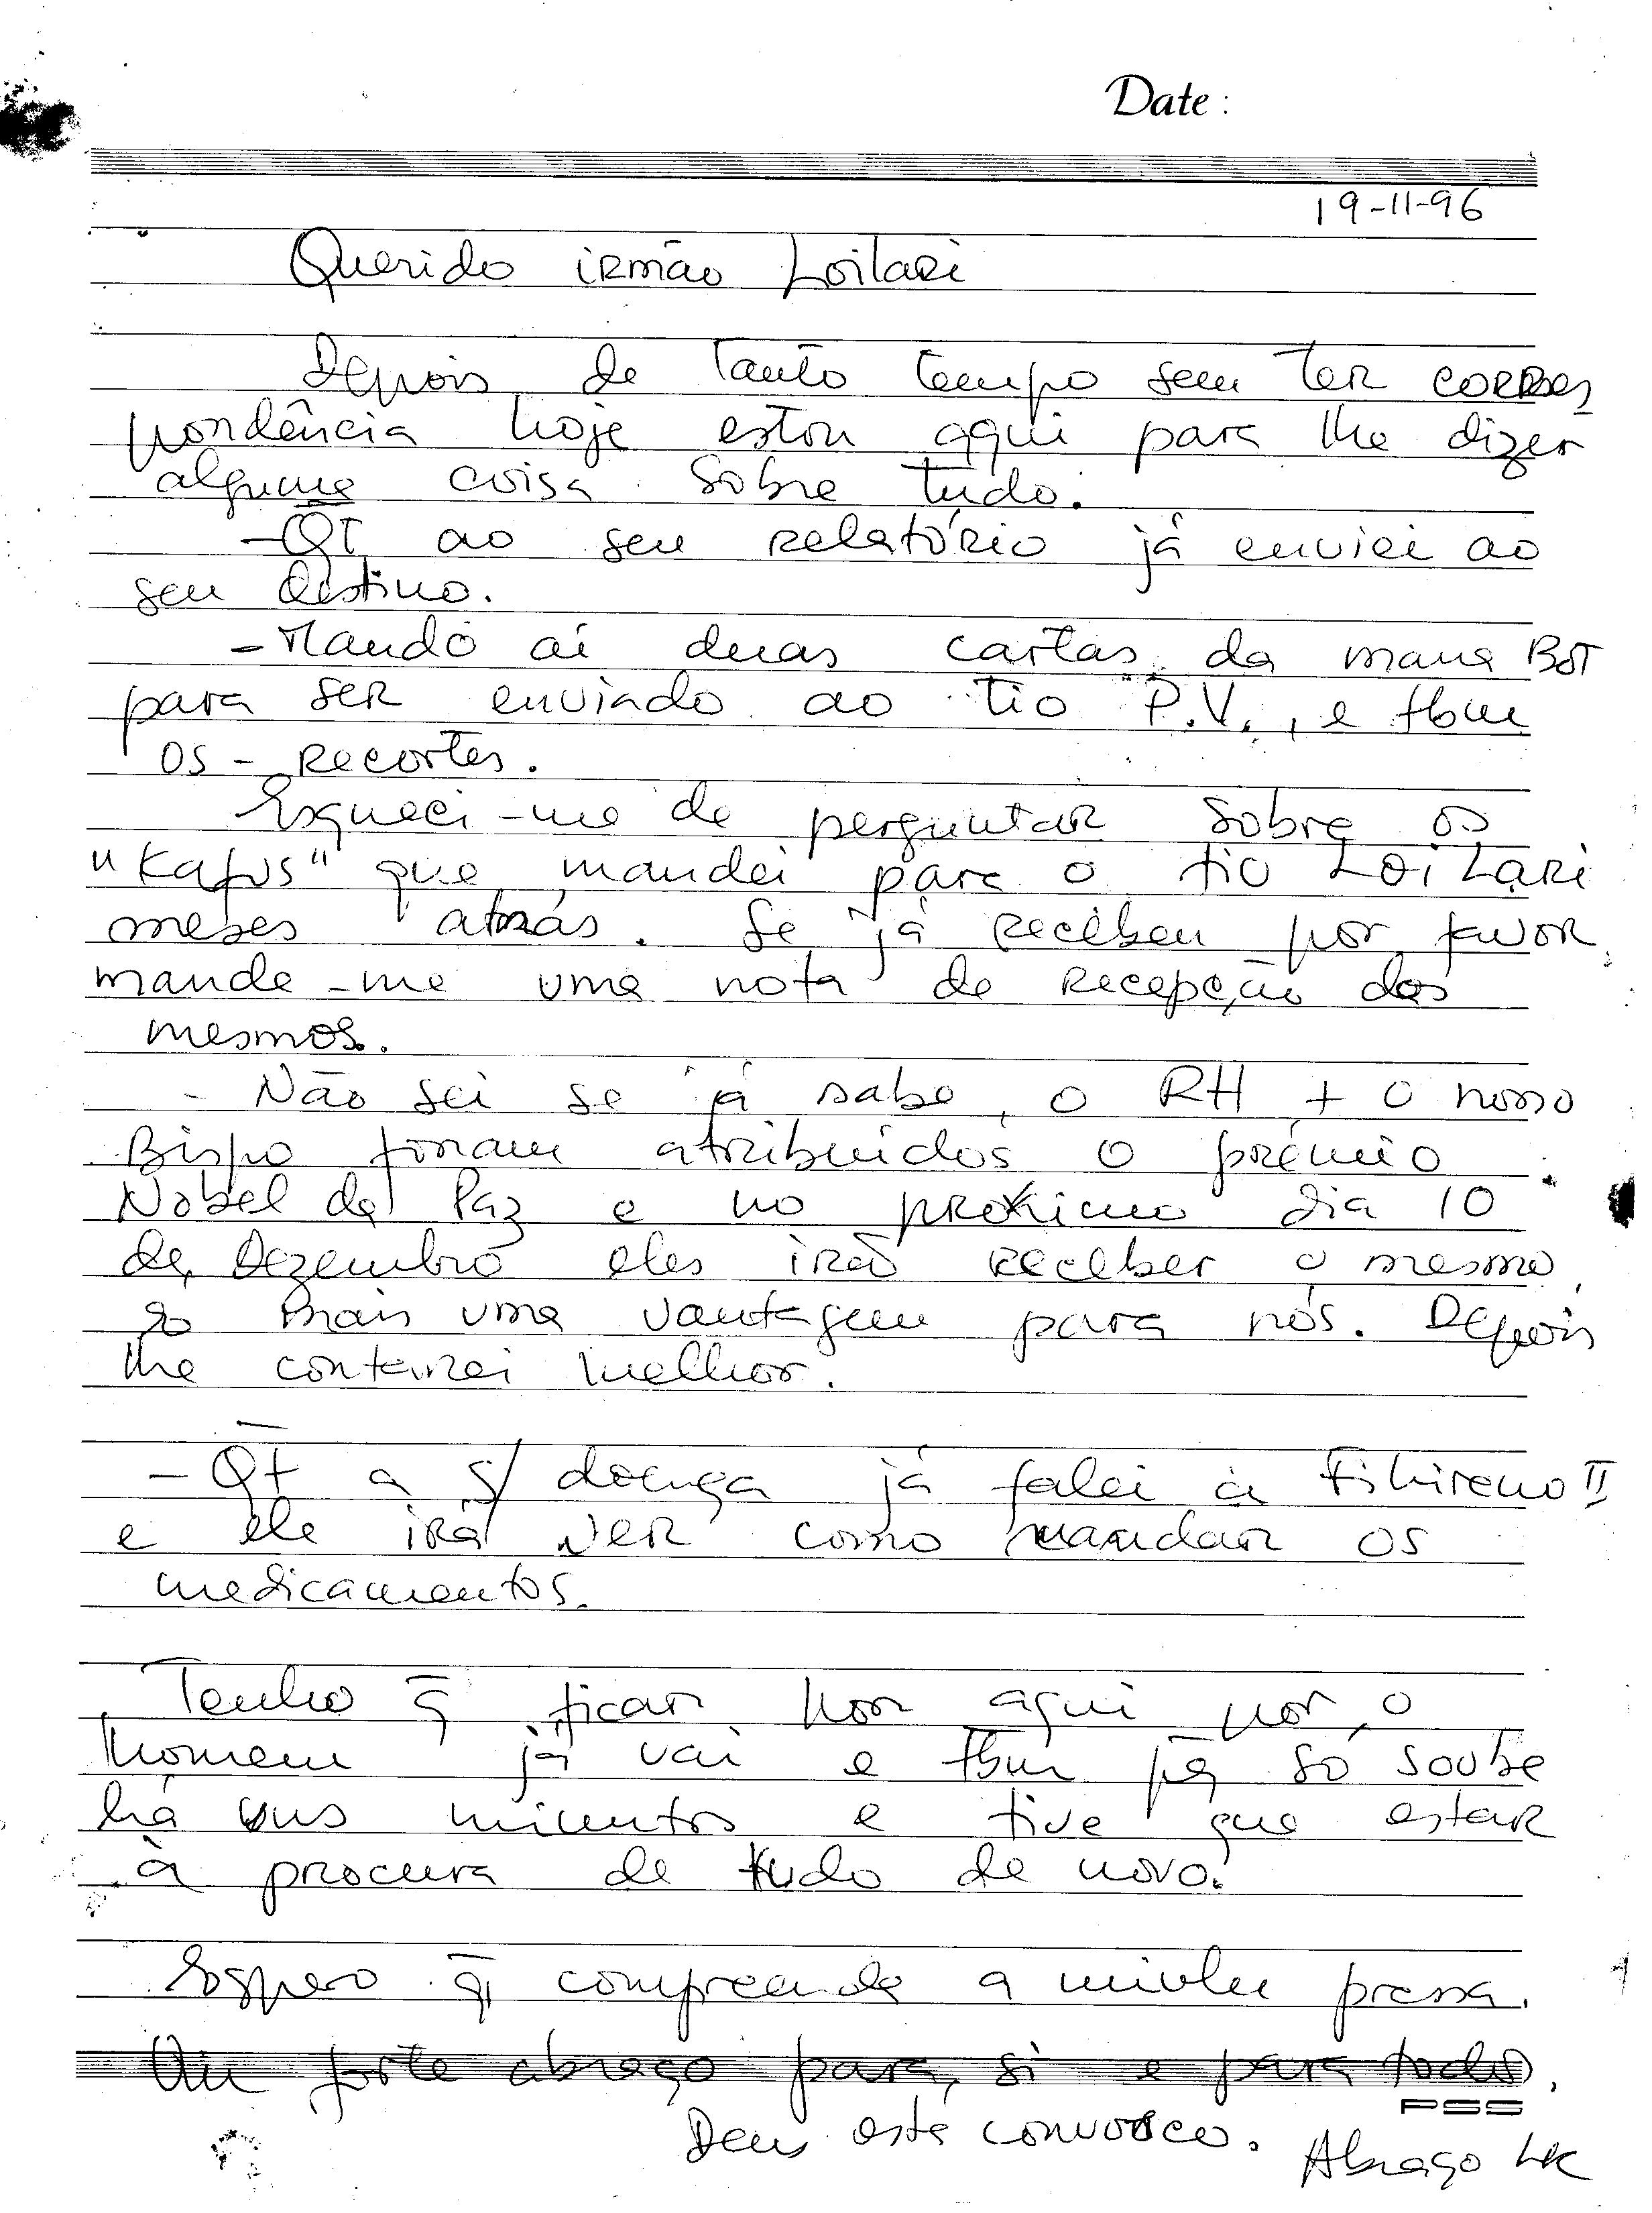 Date :
19-11-96
Querido irmão Loilari
Depois de tanto tempo sem ter corres
pondência hoje estou aqui para lhe dizer
alguma coisa sobre tudo.
- QT ao seu relatório já enviei ao
seu destino.
- Mando aí duas cartas da mana BST
para ser enviado ao tio P.V., e tbm
os - recortes.
Esqueci-me de perguntar sobre os
"Kafus" que mandei para o tio Loilari
meses atrás. Se já recebeu por favor
mande-me uma nota de recepção dos
mesmos.
- Não sei se já sabe, o RH + o nosso
Bispo foram atribuidos o prémio
Nobel da Paz e no próximo dia 10
de Dezembro eles irão receber o mesmo,
so mais uma vantagem para nós. Depois
lhe contarei melhor.
- Qt a s/ doença já falei à Fihireno II
e ele irá ver como mandar os
medicamentos.
Tenho q̄ ficar por aqui por, o
homem já vai e tbm já só soube
há uns minutos e tive que estar
à procura de tudo de novo.
Espero q̄ compreenda a minha pressa.
Um forte abraço para si e para todos,
PSS
Deus está convosco. Abraço LK